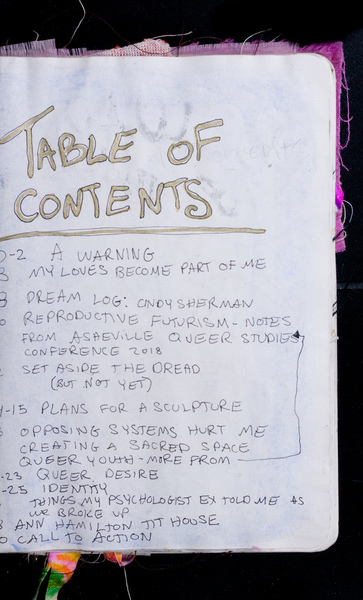 TABLE OF
CONTENTS
-2 A WARNING
3 MY LOVES BECOME PART OF ME
8 DREAM LOG: CINDY SHERMAN
REPRODUCTIVE FUTURISM - NOTES
FROM ASHEVILLE QUEER STUDIES
CONFERENCE 2018
SET ASIDE THE DREAD
(BUT NOT YET)
-15 PLANS FOR A SCULPTURE
OPPOSING SYSTEMS HURT ME
CREATING A SACRED SPACE
QUEER YOUTH - MORE FROM
-23 QUEER DESIRE
-25 IDENTITY
THINGS MY PSYCHOLOGIST EX TOLD ME AS
WE BROKE UP
8 ANN HAMILTON TIT HOUSE
CALL TO ACTION